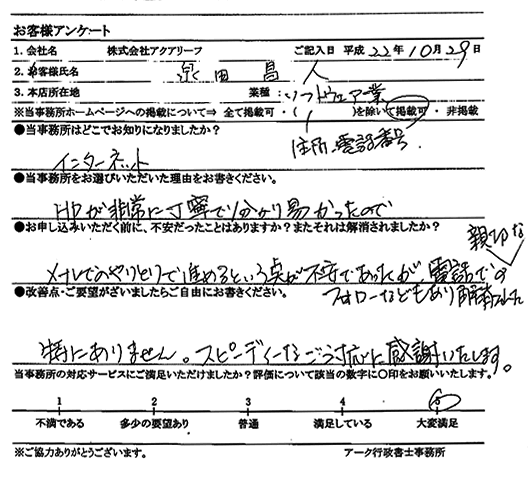 お客様アンケート
1. 会社名 株式会社アクアリーフ ご記入日 平成 22年 10月 29日
2. お客様氏名 泉田昌人
3. 本店所在地 業種：ソフトウェア業
※当事務所ホームページへの掲載について⇒ 全て掲載可・( )を除いて掲載可・非掲載
住所、電話番号
●当事務所はどこでお知りになりましたか？
インターネット
●当事務所をお選びいただいた理由をお書きください。
HPが非常に丁寧で分かり易かったので
●お申し込みいただく前に、不安だったことはありますか？またそれは解消されましたか？
メールでのやりとりで進めるという点が不安であったが、電話での
親切な
フォローなどもあり解消された
●改善点・ご要望がざいましたらご自由にお書きください。
特にありません。スピーディーなご対応に感謝いたします。
当事務所の対応サービスにご満足いただけましたか？評価について該当の数字に〇印をお願いいたします。
1 2 3 4 5
不満である 多少の要望あり 普通 満足している 大変満足
※ご協力ありがとうございます。 アーク行政書士事務所